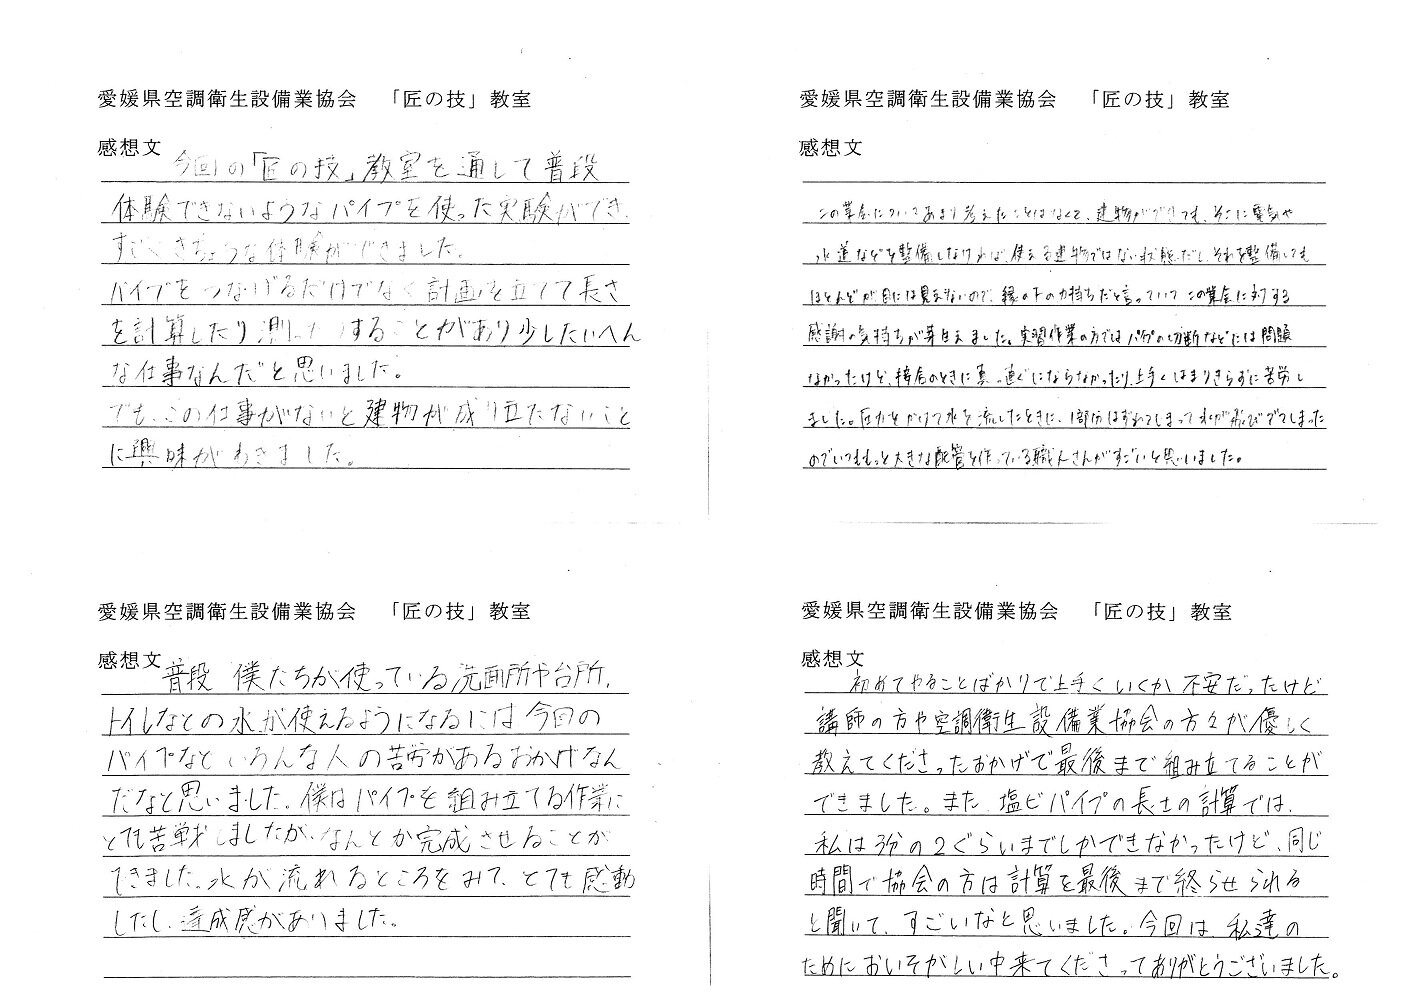 愛媛県空調衛生設備業協会 「匠の技」教室
感想文
今回の「匠の技」教室を通して普段
体験できないようなパイプを使った実験ができ、
すごくきちょうな体験ができました。
パイプをつなげるだけでなく計画を立てて長さ
を計算したり測ったりすることがあり少したいへん
な仕事なんだと思いました。
でも、この仕事がないと建物が成り立たないこと
に興味がわきました。
愛媛県空調衛生設備業協会 「匠の技」教室
感想文
この業会についてあまり考えたことはなくて、建物ができても、そこに電気や
水道などを整備しなければ、使える建物ではない状態だし、それを整備しても
ほとんどが目には見えないので、縁の下の力持ちだと言っていて この業会に対する
感謝の気持ちが芽生えました。実習作業の方ではパイプの切断などには問題
なかったけど、接合のときに真っ直ぐにならなかったり、上手くはまりきらずに苦労し
ました。圧力をかけて水を流したときに、1部分はずれてしまって水が飛びでてしまった
のでいつももっと大きな配管を作っている職人さんがすごいと思いました。
愛媛県空調衛生設備業協会 「匠の技」教室
感想文
普段 僕たちが使っている洗面所や台所、
トイレなどの水が使えるようになるには今回の
パイプなど いろんな人の苦労があるおかげなん
だなと思いました。僕はパイプを組み立てる作業に
とても苦戦しましたが、なんとか完成させることが
できました。水が流れるところをみて、とても感動
したし、達成感がありました。
愛媛県空調衛生設備業協会 「匠の技」教室
感想文
初めてやることばかりで上手くいくか不安だったけど
講師の方や空調衛生設備業協会の方々が優しく
教えてくださったおかげで最後まで組み立てることが
できました。また、塩ビパイプの長さの計算では、
私は3分の2ぐらいまでしかできなかったけど、同じ
時間で協会の方は計算を最後まで終らせられる
と聞いて、すごいなと思いました。今回は、私達の
ためにおいそがしい中来てくださってありがとうございました。